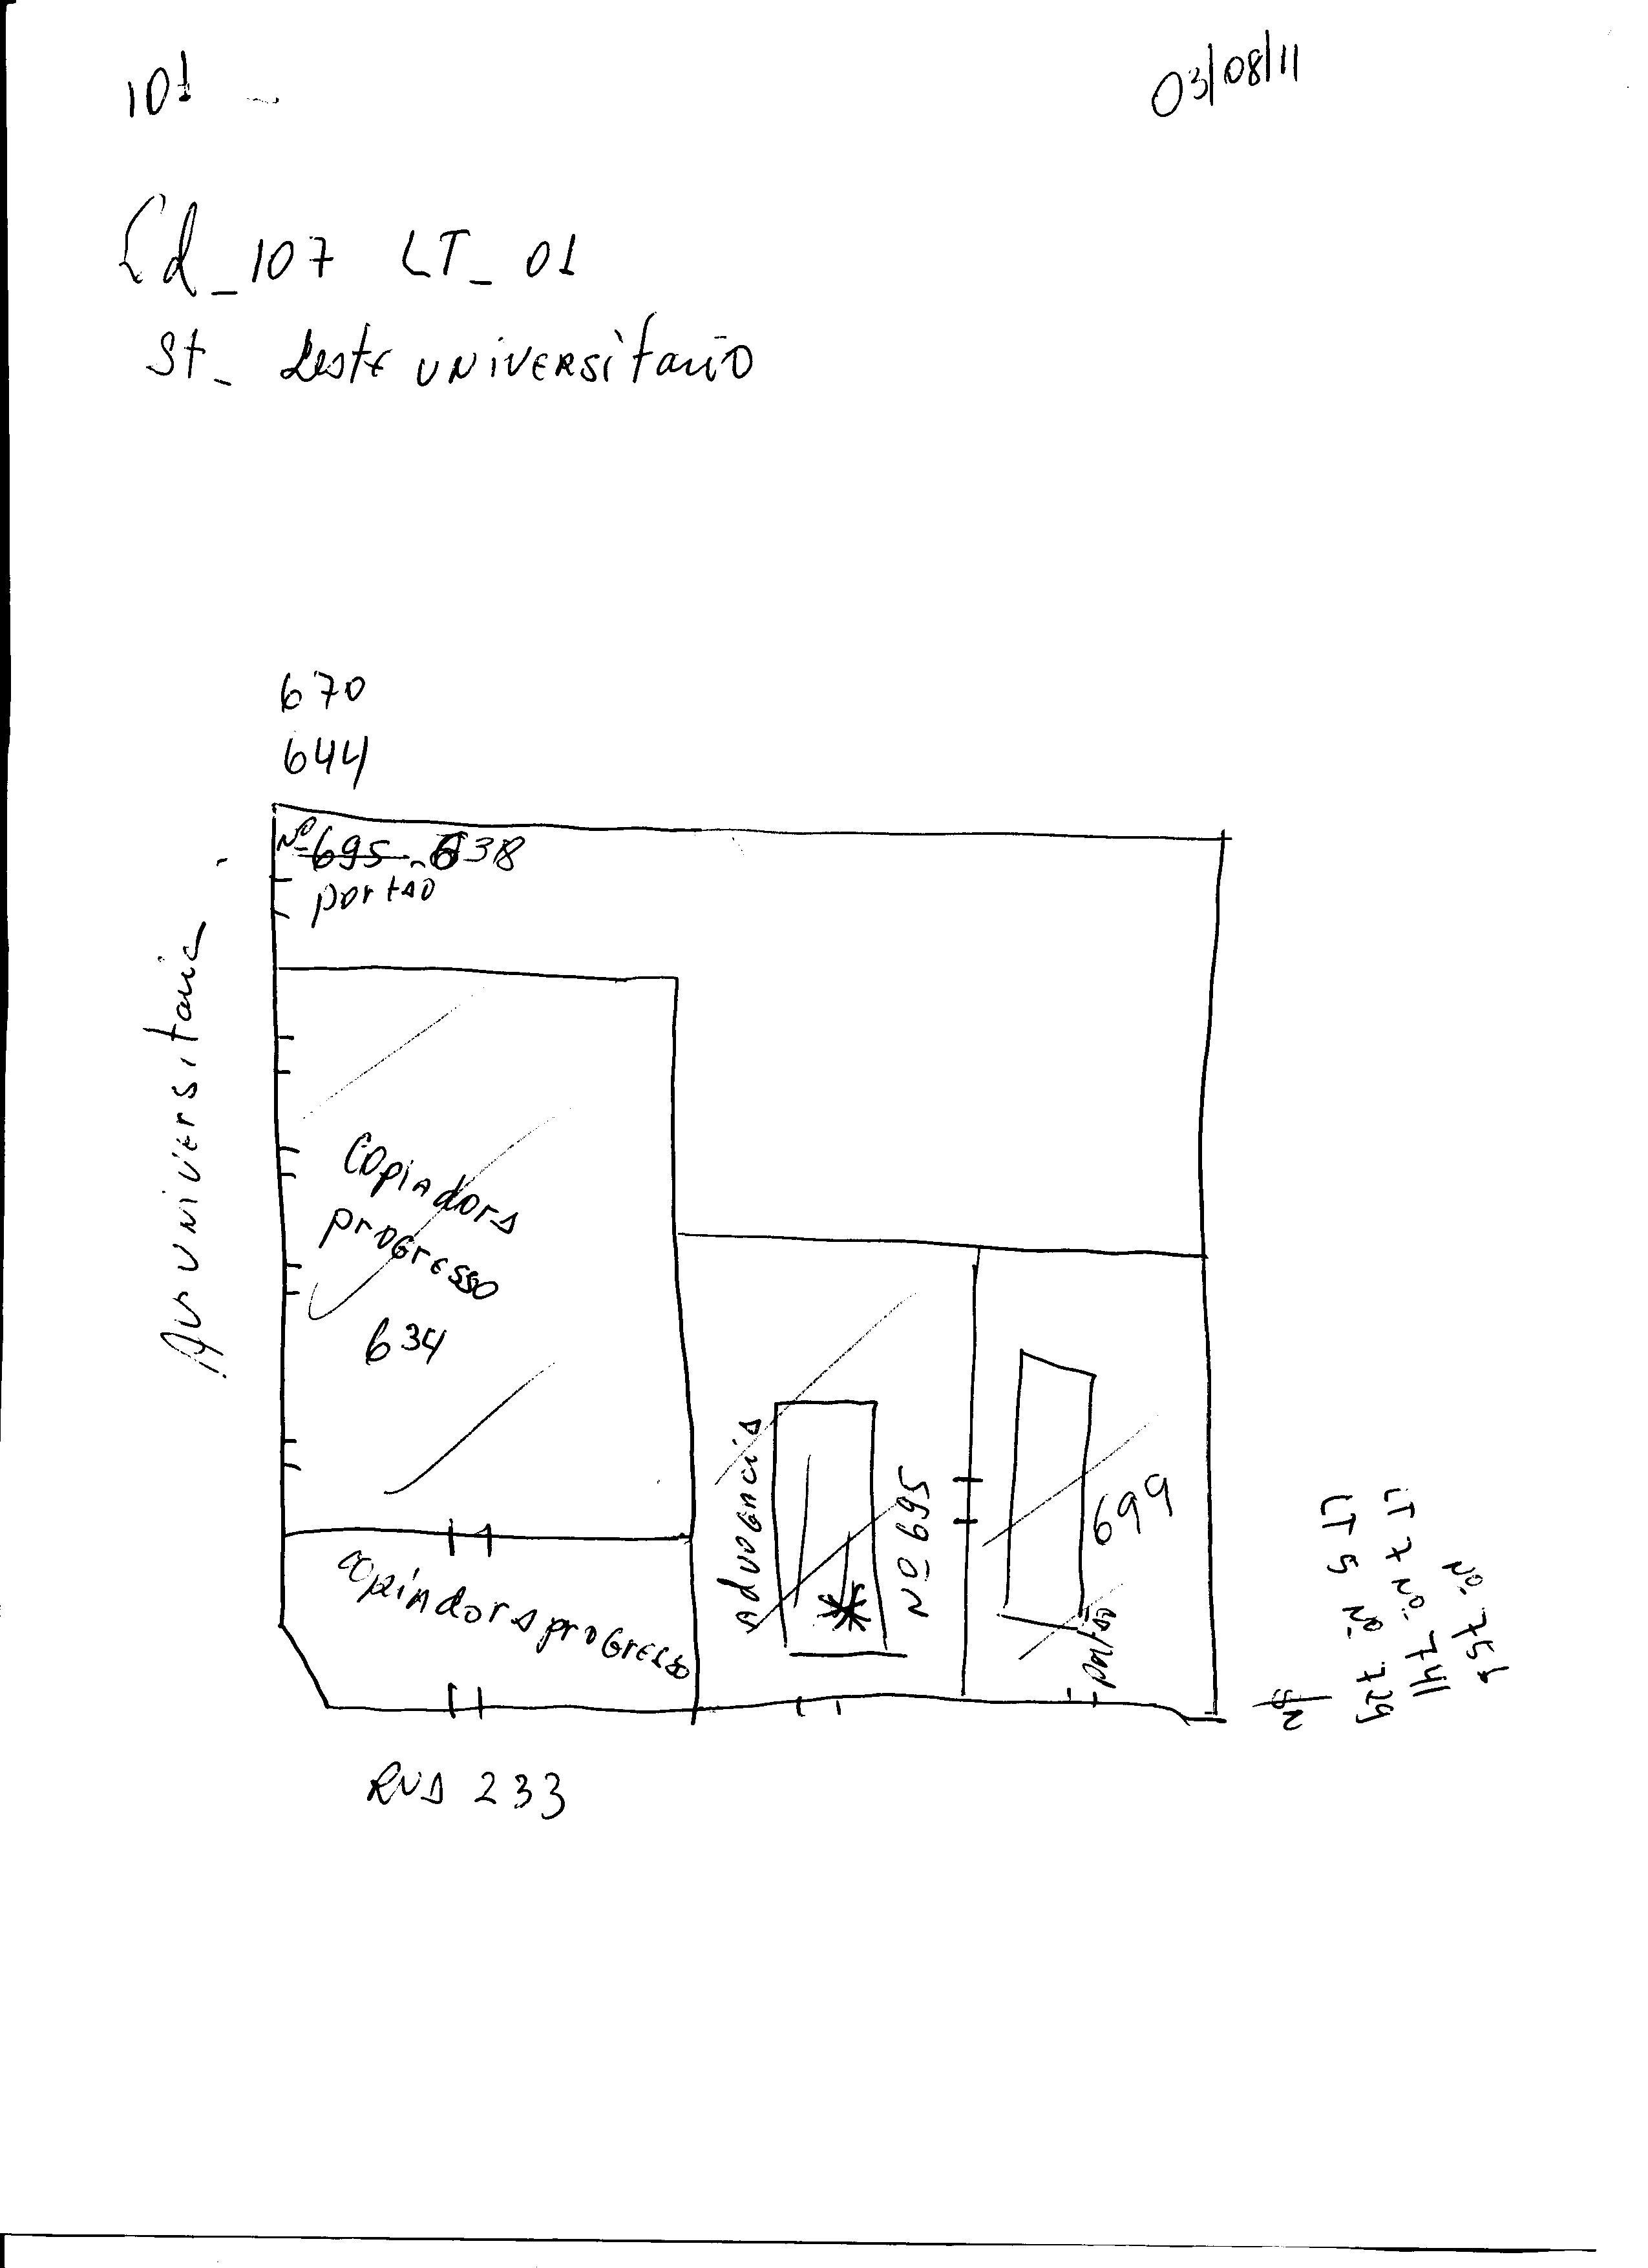 101
03/08/11
Cd_107 LT_01
St_ Leste universitario
670
644
Nº 695 - 638
portao
Av universitaria
Copiadora
progresso
634
copiadora progresso
Advogacia
Nº 695
699
portao
LT 5 Nº 729
LT 7 Nº 741
Nº 757
Rua 233